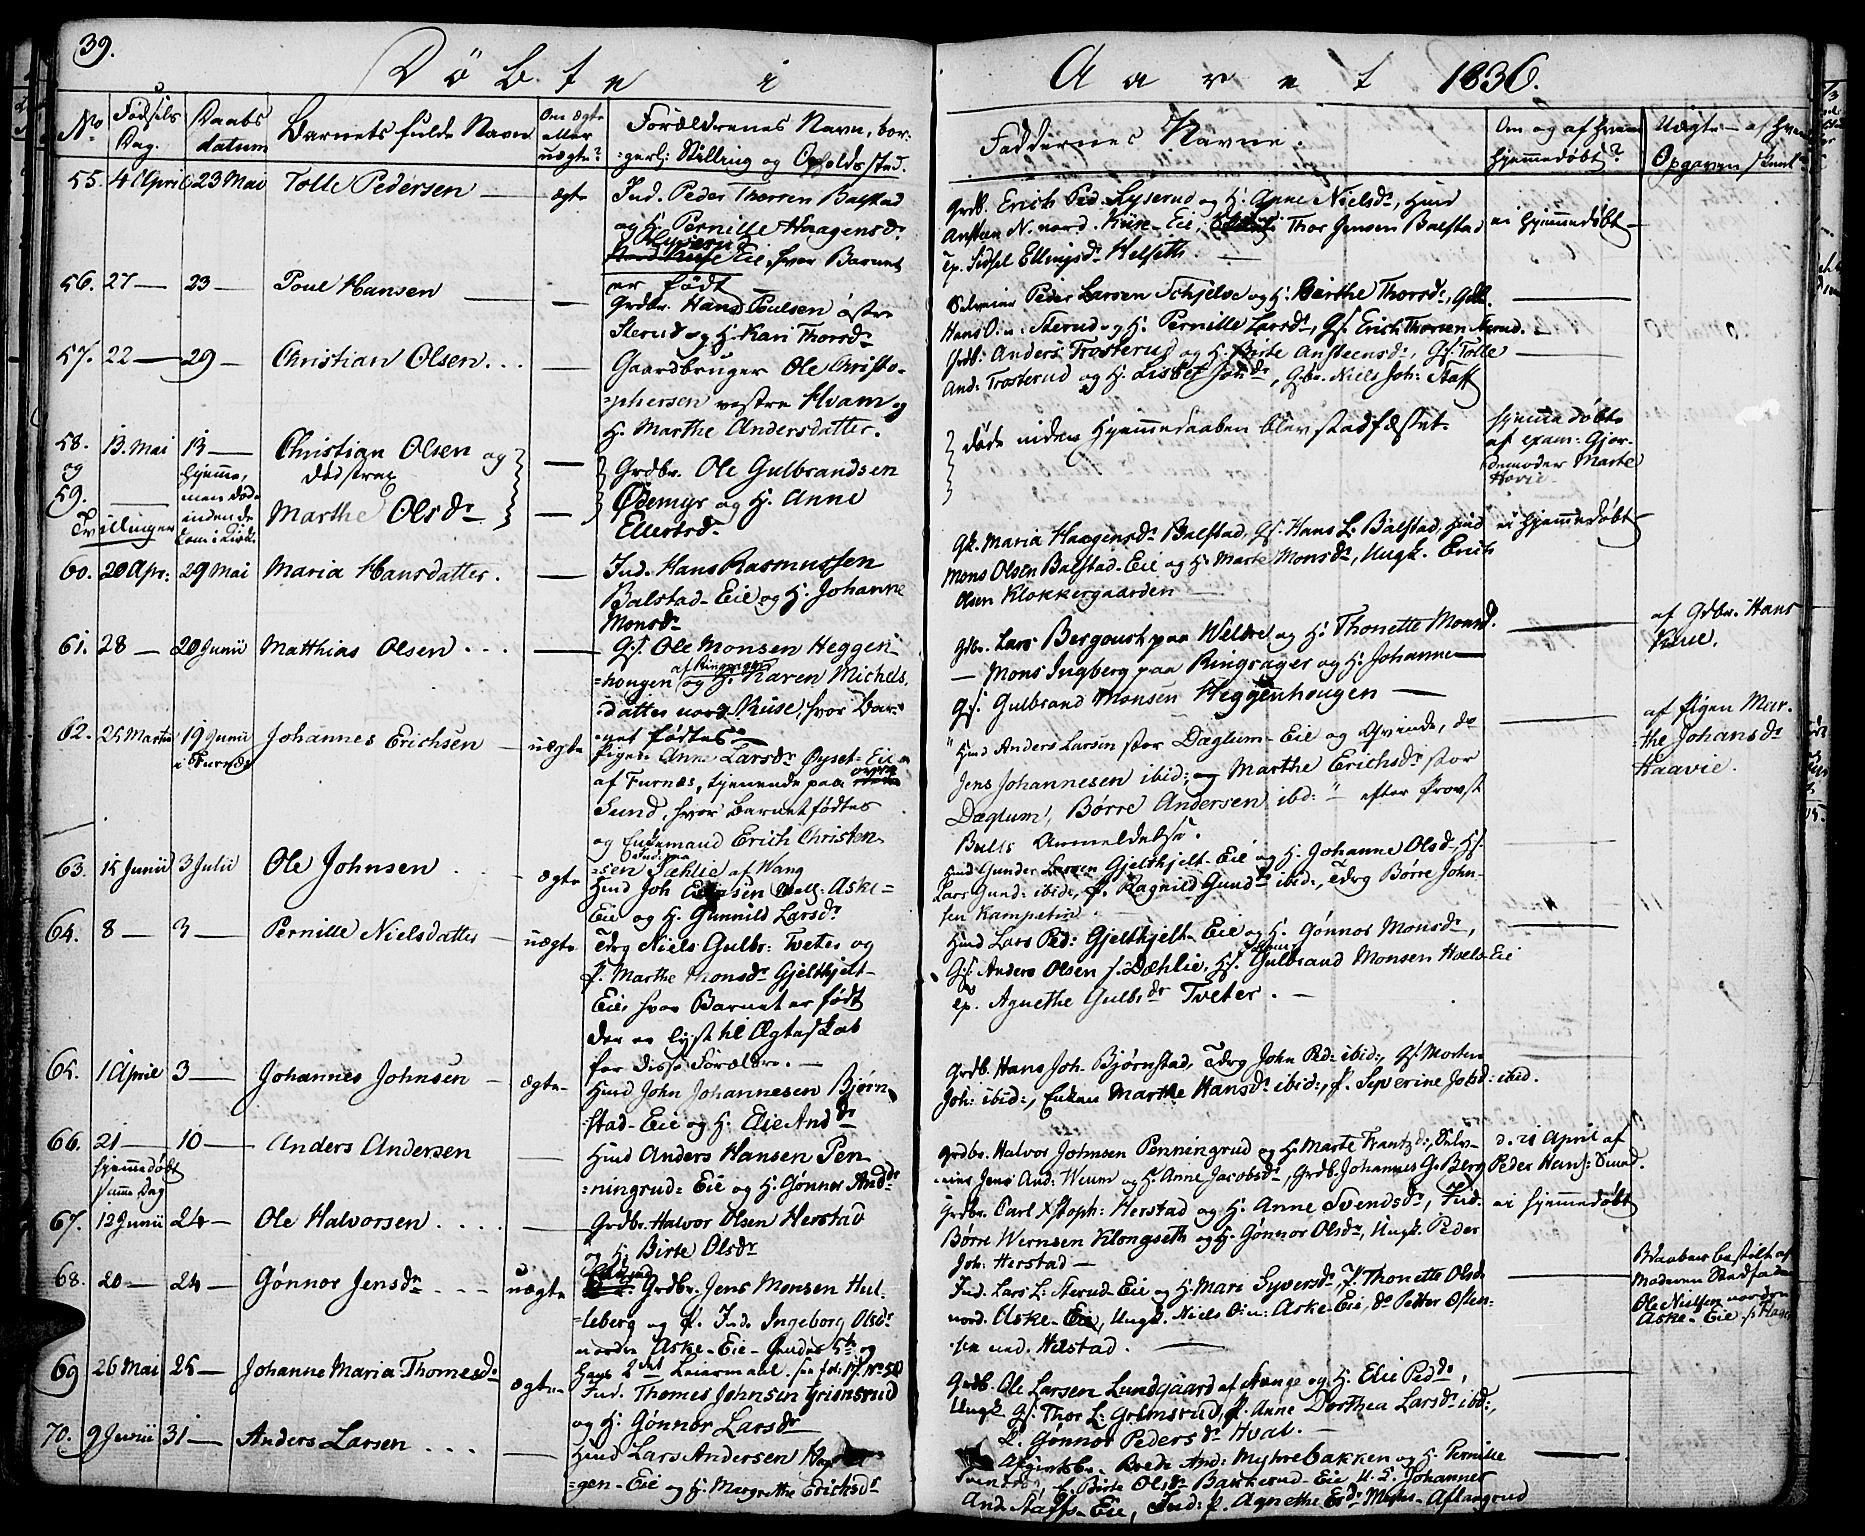 39.
Döbte i
Aaret 1836.
No
Födsels Dag.
Daabs datum
Barnets fulde Navn
Om ægte eller uægte?
Forældrenes Navn, bor-
gerl: Stilling og Opholdssted.
Faddernes Navne.
Om og af hvem hjemmedöbt?
55. 4 April 23 Mai Tolle Pedersen — ægte
Ind. Peder Thorsen Balstad
og H. Pernille Haagensdr
Eie, hvor Barnet
er födt
Grdb. Erich Ped. Lyserud og H. Anne Nielsdr, Huusmd
Ansten N. nord. Kise-Eie, Thor Jensen Balstad
Ep. Sidsel Ellingsdr Helseth.
ei hjemmedöbt
56. 27 — 23 — Poul Hansen —
Grdbr. Hans Poulsen östre
Sterud og H. Kari Thorsdr
Peder Larsen Schjelve og H. Birthe Thorsdr,
Hans O. Sterud og H. Pernille Larsdr, Gs. Erich Thorsen Sterud.
57. 22 — 29 — Christian Olsen . . . —
Gaardbruger Ole Christo-
phersen vestre Hvam og
H. Marthe Andersdatter.
Grdb: Anders Trosterud og H. Birte Anstensdr, Gs. Tolle
And: Trosterud og H. Lisbet Johsdr, Gbr. Niels Joh: Staff
58. 13. Mai 13 — Christian Olsen og
og
59. hjemme, men döde inden de kom i Kirke
Dödstrax
Marthe Olsdr —
Tvillinger
Grdbr. Ole Gulbrandsen
Ödemyr og H. Anne
Ellertsdr
döde inden Hjemmedaaben blev stadfæstet.
hjemmedöbte
af exam: Gjor-
demoder Marte
Hovie
60. 20 Apr: 29 Mai Maria Hansdatter. —
Ind. Hans Rasmussen
Balstad-Eie og H. Johanne
Monsdr
Gk. Maria Haagensdr Balstad, Gs. Hans L. Balstad, Huusmd
Mons Olsen Balstad-Eie og H. Marte Monsdr, Ungk. Erich
Olsen Klokkergaarden
ei hjemmedöbt
61. 28 — 20 Junii Matthias Olsen . . . —
Gs. Ole Monsen Heggen-
hougen af Ringsager og H. Karen Michels-
datter nord. Kise, hvor Bar-
net födtes
Gbr. Lars Bergqust paa Weldre og H. Thonette Monsd.
— Mons Ingberg paa Ringsager og H. Johanne —
Gs. Gulbrand Monsen Heggenhougen —
af Grdbr. Hans
Kise.
62. 25 Martii 19 Junii i Furnæs Johannes Erichsen — uægte
Pigen Anne Larsdr Öyset-Eie
af Furnæs, tjenende paa
Sund, hvor Barnet födtes
og Enkemand Erich Christen-
sen Sæhlie af Wang
Huusmd Anders Larsen stor Dæglum-Eie og Qvinde, do
Jens Johannesen ibid: og Marthe Erichsdr stor
Dæglum, Börre Andersen ibd: — efter Provst
Bulls Anmeldelse.
af Pigen Mar-
the Johansdr
Haavie.
63. 15 Junii 3 Julii Ole Johnsen . — ægte
Huusmd Joh Aske-
Eie og H. Gunnild Larsdr
Huusmd Gunder Larsen Gjeltkjelt-Eie og H. Johanne Olsdr, Hs.
Lars Gund: ibid:, P. Ragnild Gundsdr ibid:, Tdrg Börre John-
sen Kampetin
64. 8 — 3 — Pernille Nielsdatter — uægte
Tdrg Niels Gulbr: Tveter og
P. Marthe Monsdr Gjeltkjelt-
Eie, hvor Barnet er födt
Der er lyst til Ægteskab
for disse Forældre. —
Huusmd Lars Ped: Gjeltkjelt-Eie og H. Gönnor Monsdr,
Gs. Anders Olsen s. Dæhlie, Hs. Gulbrand Monsen Hoels-Eie
Ep. Agnethe Gulbrsdr Tveter. —
65. 1 April 3 — Johannes Johnsen — ægte
Huusmd John Johannesen Björn-
stad-Eie og H. Elie Andsdr
Grdb. Hans Joh. Björnstad, Tdrg John Ped: ibid:, Gs. Morten
Joh: ibid:, Enken Marthe Hansdr ibid:, P. Syverine Johsd: ibid.
66. 21 — 10 — Anders Andersen —
hjemmedöbt
samme Dag
Huusmd Anders Hansen Pen-
ningrud-Eie og H. Gönner Andsdr
Grdbr. Halvor Johnsen Penningrud og H. Marte Frantzd:, Selv-
eier Jens And: Weum og H. Anne Jacobsdr, Grdb. Johannes G. Berg
d. 21 April af
Peder Hans: Smed.
67. 12 Junii 24 — Ole Halvorsen . . . . —
Grdbr. Halvor Olsen Herstad
og H. Birte Olsdr
Grdbr. Carl Xstoph: Herstad og H. Anne Svendsdr, Ind.
Börre Wernsen Klongseth og H. Gönnor Olsdr, Ungk. Peder
Joh: Herstad —
ei hjemmedöbt
68. 20 — 24 — Gönnor Jensdr . . . uægte
Grdbr. Jens Monsen Hul-
leberg og P. Ind. Ingeborg Olsdr
norden Aske-Eie
hans 2det Leiermaal.
Ind. Lars L: Sterud-Eie og H. Mari Syversdr, P. Thonette Olsdr
nord. Aske-Eie, Ungk. Niels Aske-Eie, do Petter Osten-
sen ned. Helstad. —
Daaben bestilt af
Moderen Stedfader
Ole Nielsen norden
Aske-Eie
69 26 Mai 25 — Johanne Maria Thomesdr ægte
Ind. Thomes Johnsen Grimsrud
og H. Gönnor Larsdr
Grdb. Ole Larsen Lundgaard af Stange og H. Elie Pedsdr,
Ungk Gs. Thor L: Grimsrud, P. Anne Dorthea Larsdr ibd:,
P. Gönnor Pedersdr Hval. —
70. 9 Junii 31 — Anders Larsen . . . —
Huusmd Lars Andersen
gen-Eie og H. Margrethe Erichsdr
And: Myhrebakken og H. Pernille
P. Birte Olsdr Bakkerud-Eie, Johannes
And: Staffs-Eie, Ind: P. Agnethe Aflangrud